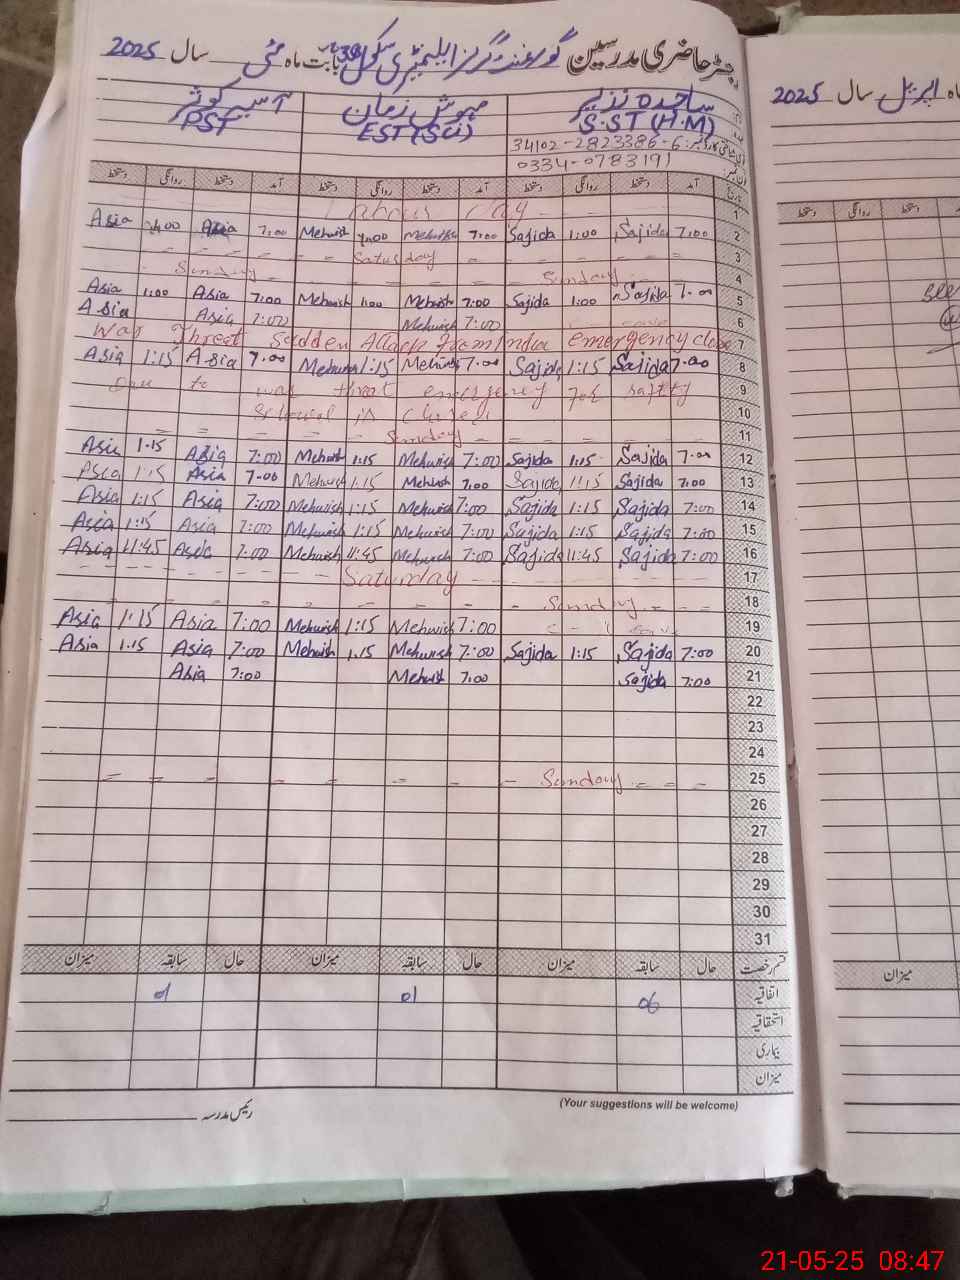 رجسٹر حاضری مدرسین گورنمنٹ گرلز ایلیمنٹری سکول 36 بابت ماہ مئی سال 2025
ساجدہ نذیر مہوش زمان آسیہ کوثر
S.ST (H.M) EST (Sci) PST
34102-2823386-6
0334-0783191
تاریخ آمد دستخط روانگی دستخط آمد دستخط روانگی دستخط آمد دستخط روانگی دستخط
Labour day 1
Asia 1:00 Asia 7:00 Mehwish 1:00 Mehwish 7:00 Sajida 1:00 Sajida 7:00 2
Saturday 3
Sunday Sunday 4
Asia 1:00 Asia 7:00 Mehwish 1:00 Mehwish 7:00 Sajida 1:00 Sajida 7:00 5
Asia Asia 7:00 Mehwish 7:00 leave 6
War Threat Sudden Attack From India emergency close 7
Asia 1:15 Asia 7:00 Mehwish 1:15 Mehwish 7:00 Sajida 1:15 Sajida 7:00 8
Due to war threat emergency for safty 9
School is closed 10
Sunday 11
Asia 1:15 Asia 7:00 Mehwish 1:15 Mehwish 7:00 Sajida 1:15 Sajida 7:00 12
Asia 1:15 Asia 7:00 Mehwish 1:15 Mehwish 7:00 Sajida 1:15 Sajida 7:00 13
Asia 1:15 Asia 7:00 Mehwish 1:15 Mehwish 7:00 Sajida 1:15 Sajida 7:00 14
Asia 1:15 Asia 7:00 Mehwish 1:15 Mehwish 7:00 Sajida 1:15 Sajida 7:00 15
Asia 11:45 Asia 7:00 Mehwish 11:45 Mehwish 7:00 Sajida 11:45 Sajida 7:00 16
Saturday 17
Sunday 18
Asia 1:15 Asia 7:00 Mehwish 1:15 Mehwish 7:00 19
Asia 1:15 Asia 7:00 Mehwish 1:15 Mehwish 7:00 Sajida 1:15 Sajida 7:00 20
Asia 7:00 Mehwish 7:00 Sajida 7:00 21
22
23
24
Sunday 25
26
27
28
29
30
31
قسم رخصت حال سابقہ میزان حال سابقہ میزان حال سابقہ میزان
اتفاقیہ 06 01 01
استحقاقیہ
بیماری
میزان
(Your suggestions will be welcome)
رئیس مدرسہ
ماہ اپریل سال 2025
دستخط روانگی دستخط
میزان
21-05-25 08:47